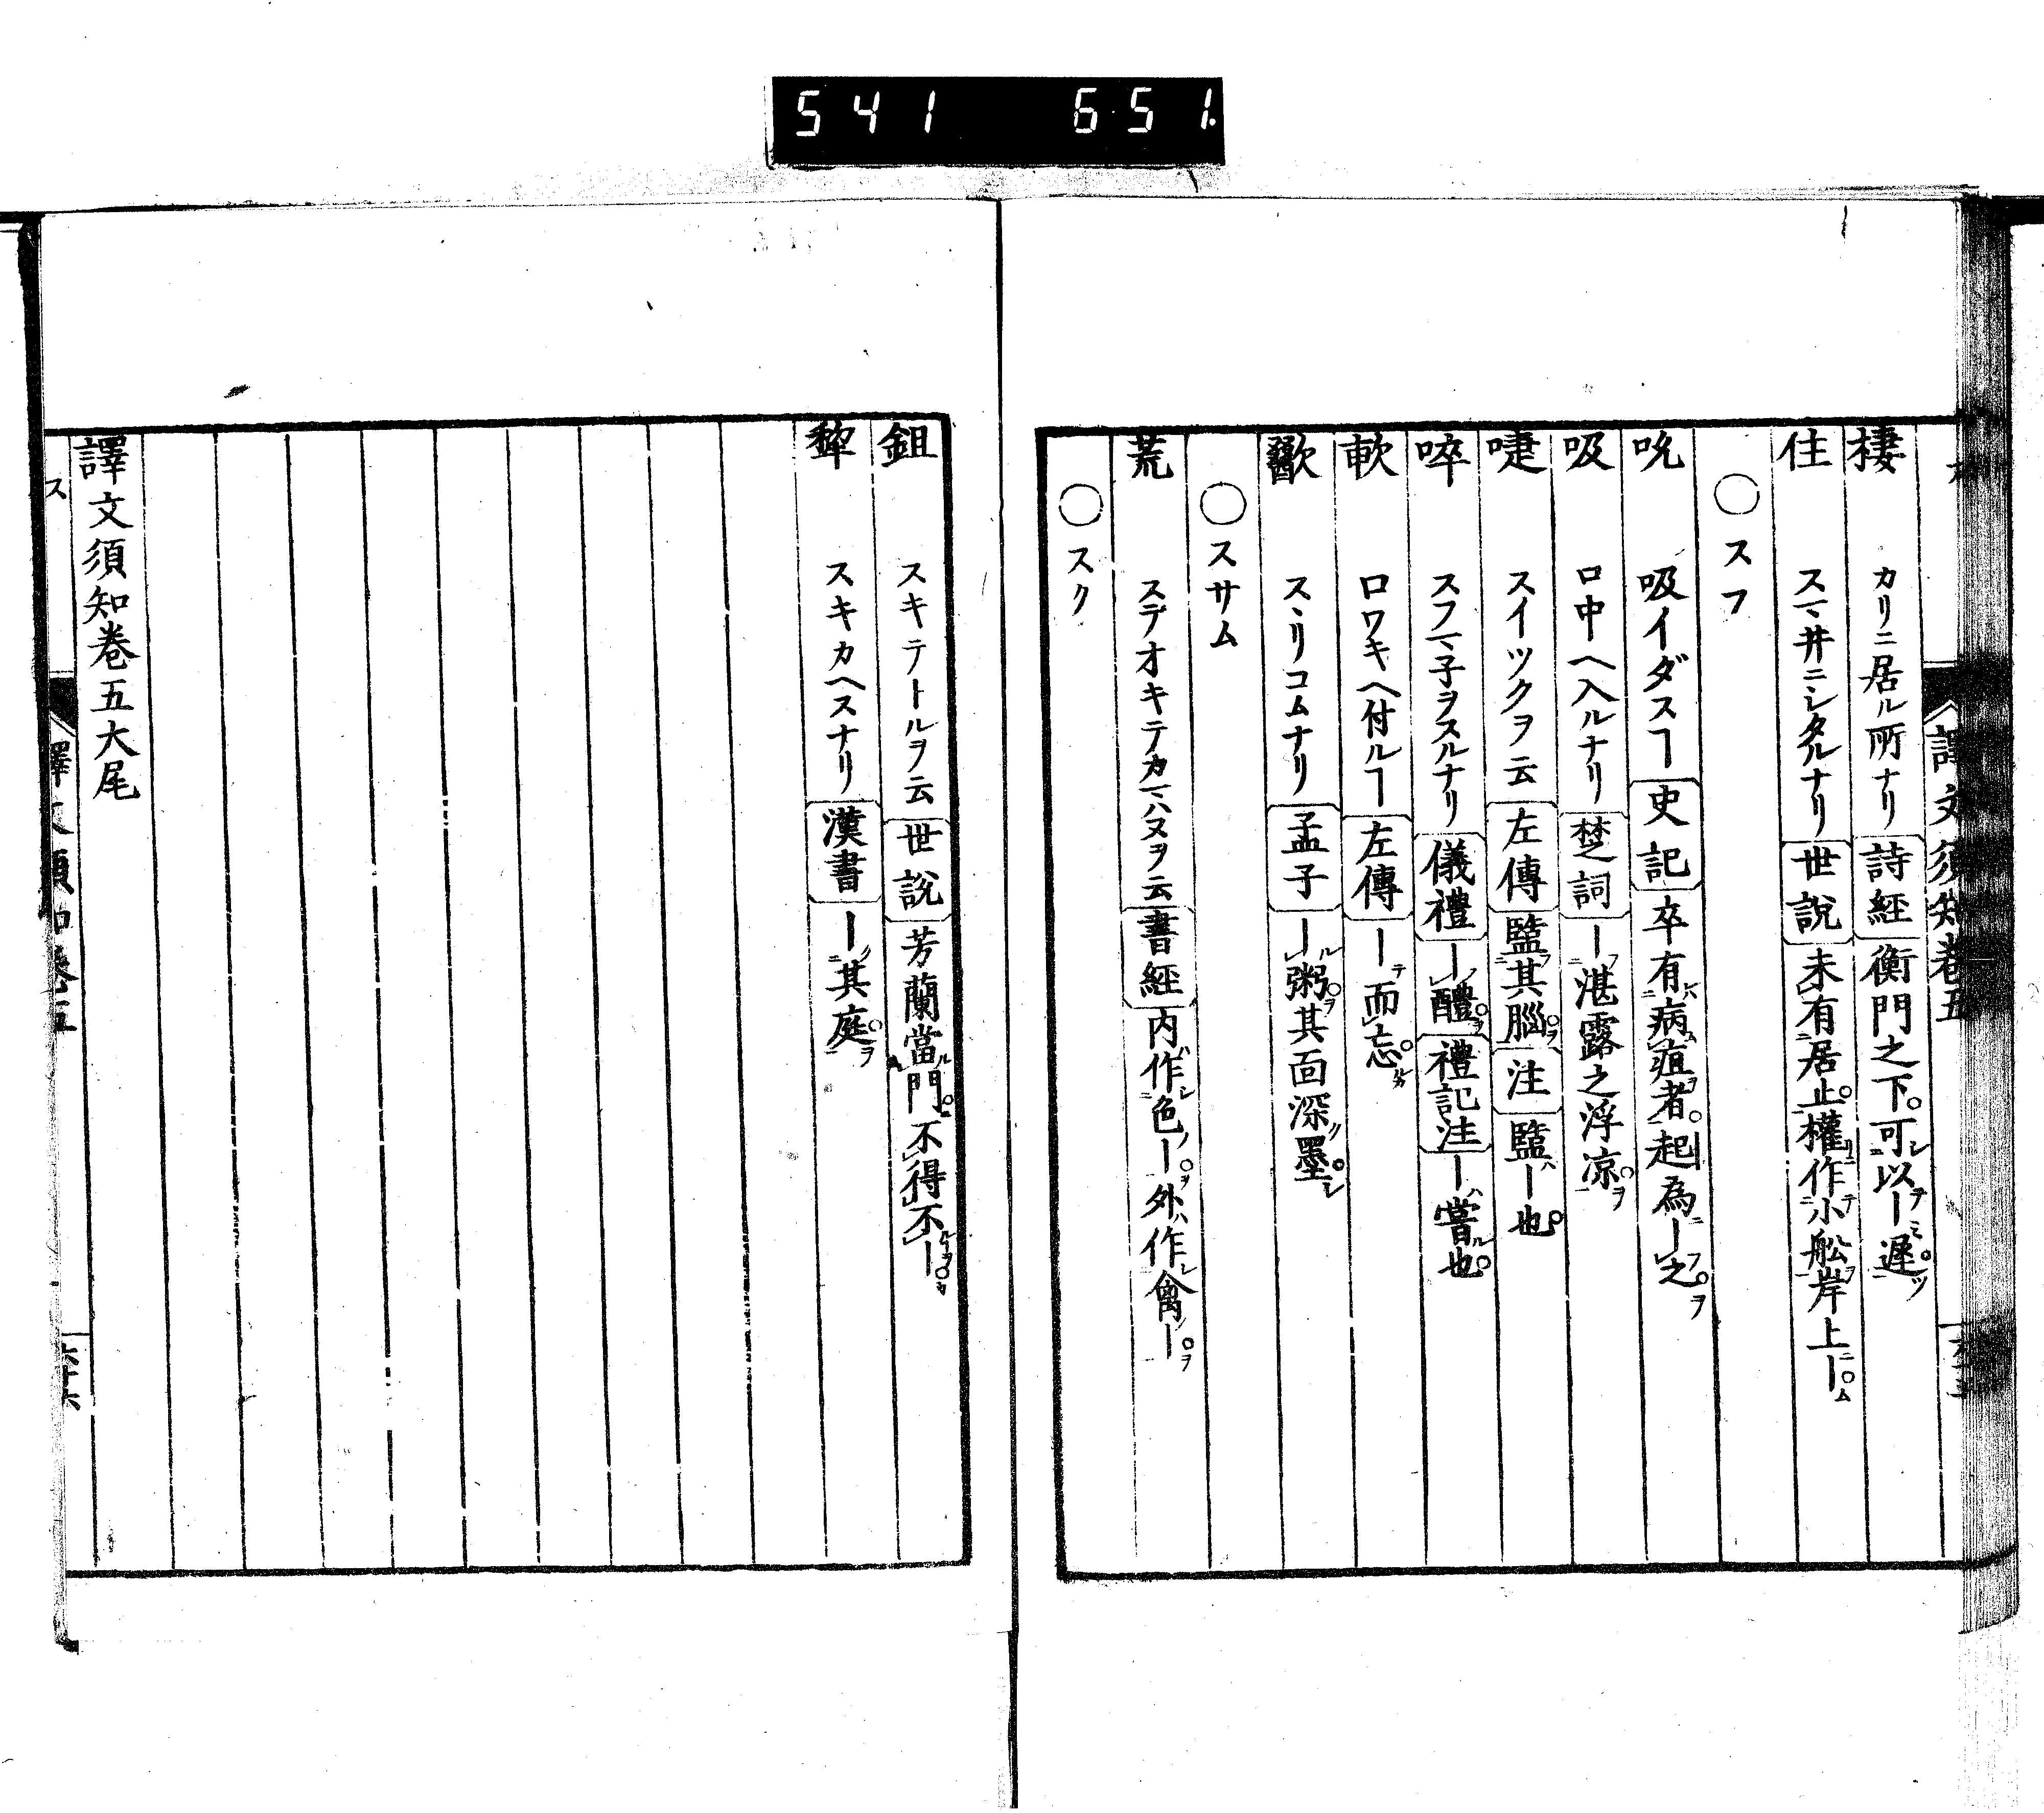 541 651
譯文須知巻五
棲 カリニ居ル所ナリ 詩經 衡門之下。可以ー遲
住 スマ井ニシタルナリ 世說 未有居止。權作小舩岸上ー
○スフ
吮 吸イダスヿ 史記 卒有病疽者。起為ー之
吸 口中ヘ入ルナリ 楚詞 ー湛露之浮凉
啑 スイツクヲ云 左傳 盬其腦 注 盬ー也
啐 スフマ子ヲスルナリ 儀禮 ー醴 禮記注 ー嘗也
軟 口ワキヘ付ルヿ 左傳 ー而忘
歠 スヽリコムナリ 孟子 ー粥其面深墨
○スサム
荒 ステオキテカマハヌヲ云 書經 内作色ー外作禽ー
○スク
鉏 スキテトルヲ云 世說 芳蘭當門不得不ー
犂 スキカヘスナリ 漢書 ー其庭
譯文須知巻五大尾
ス